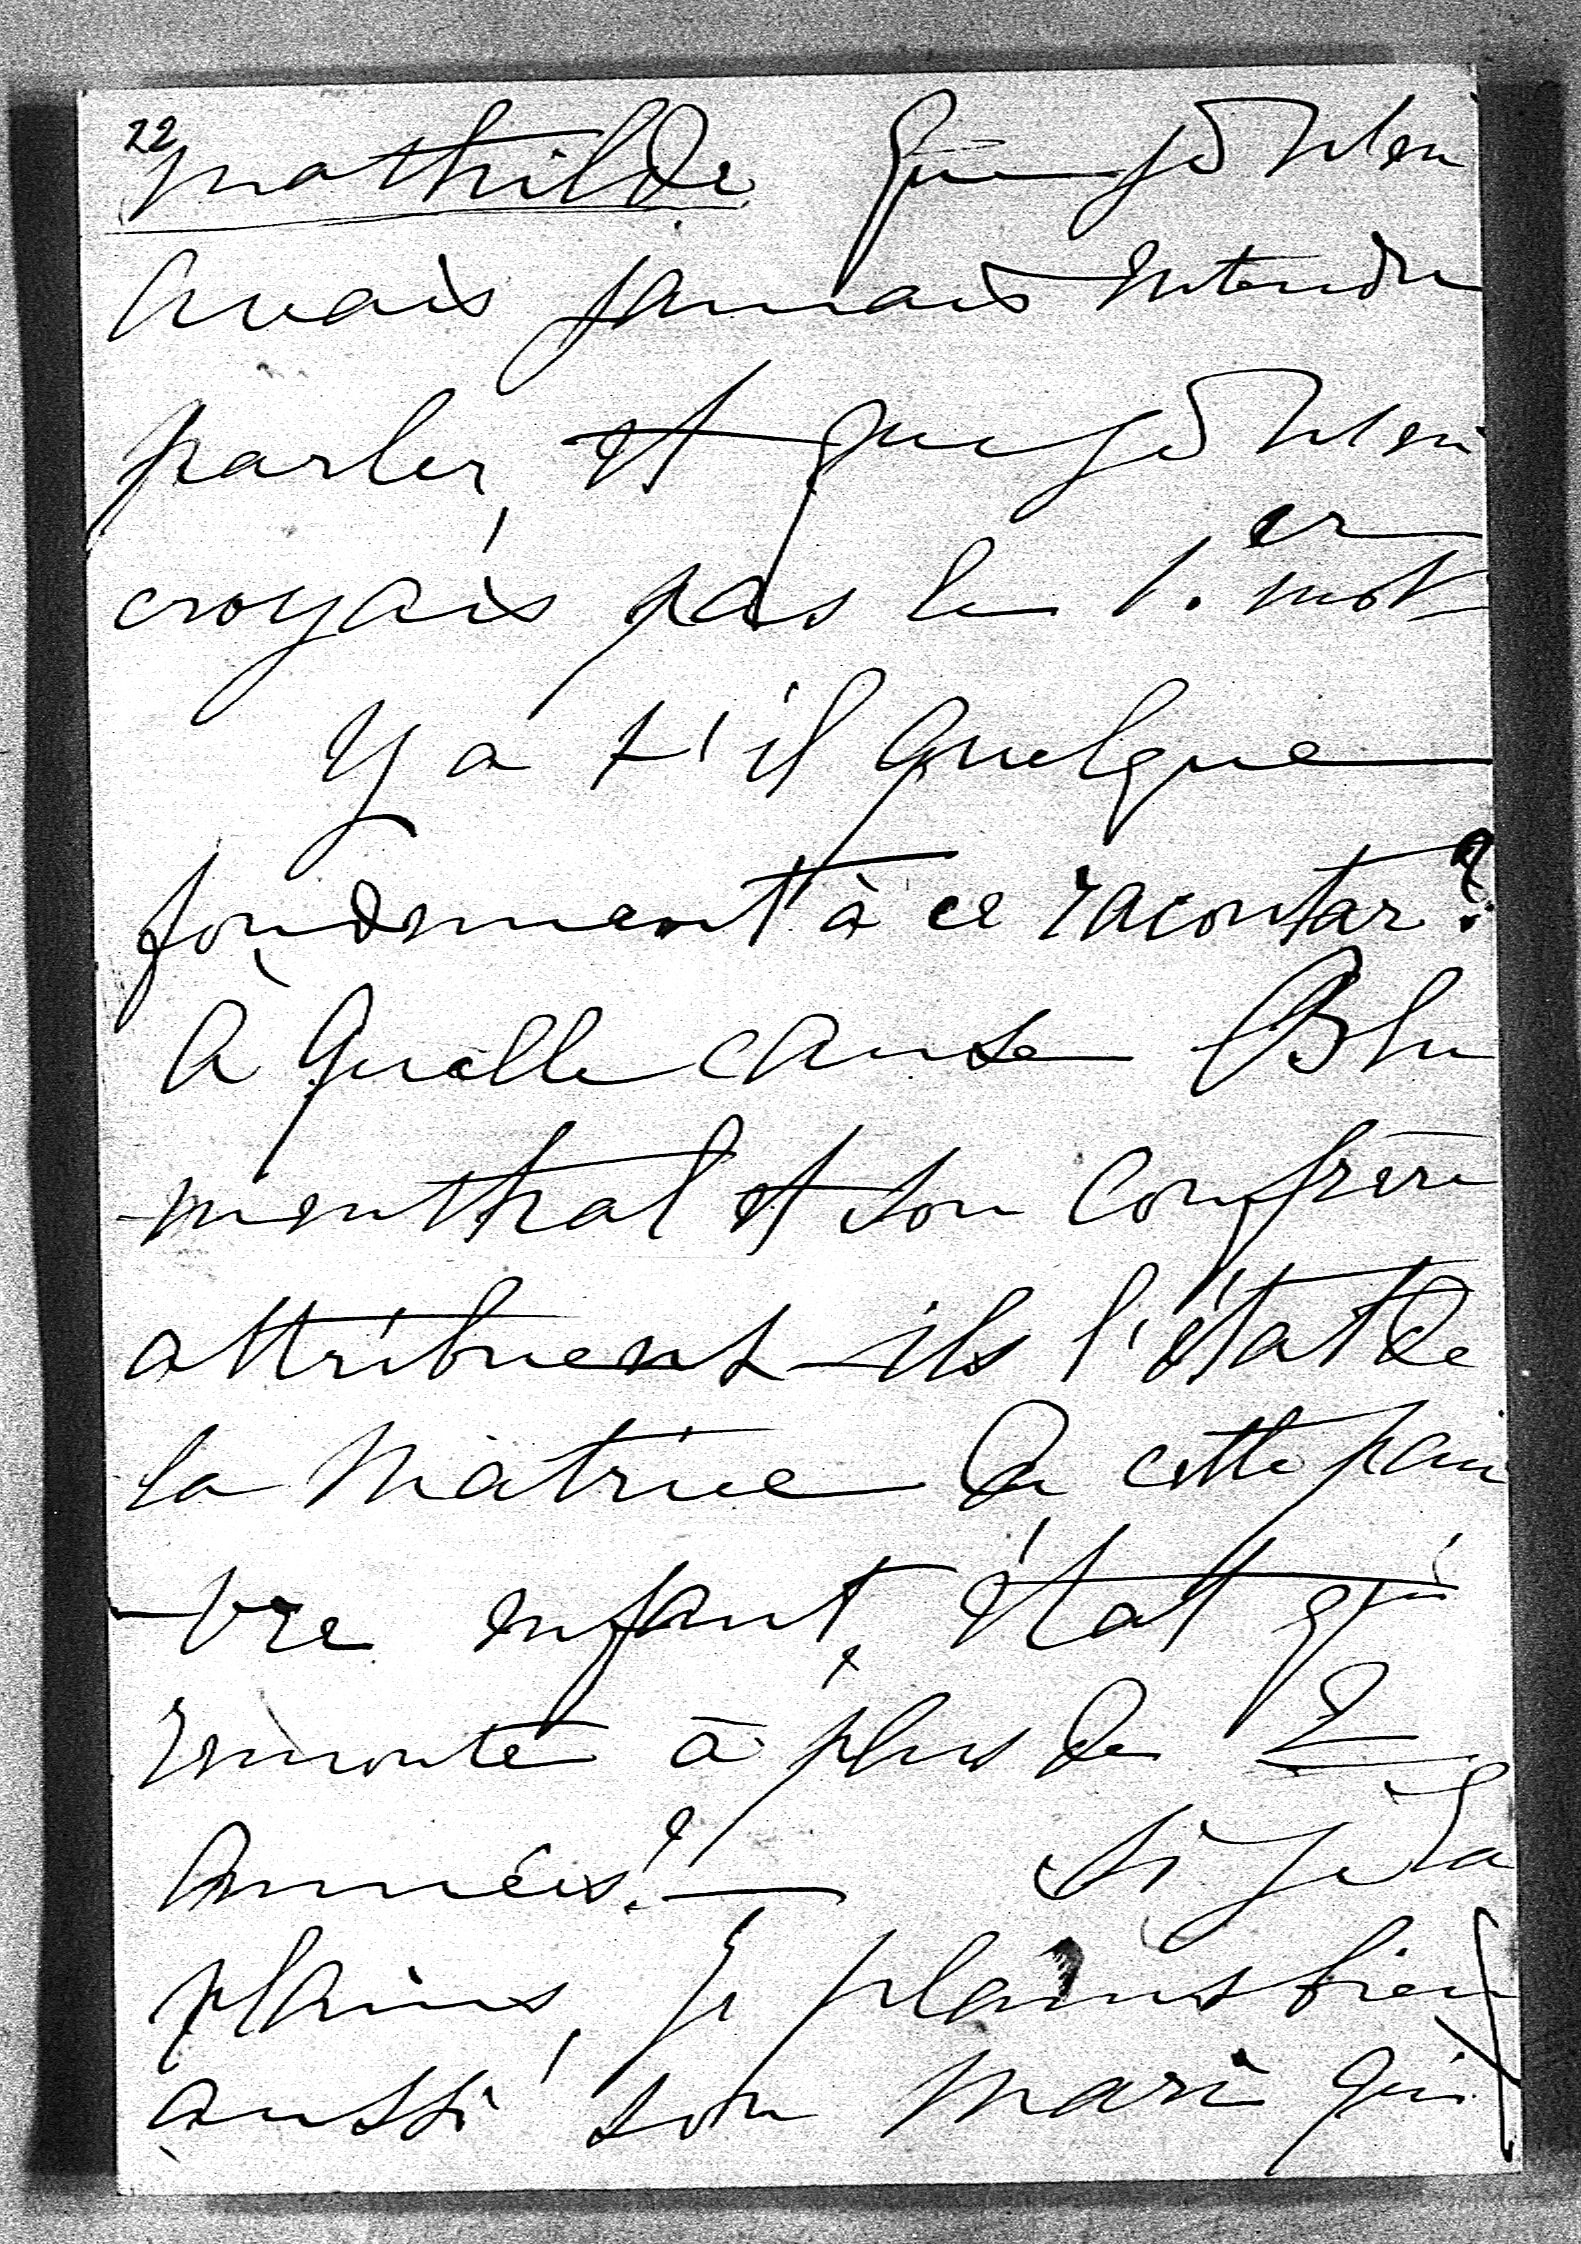 22
Mathilde que je n'en
avais jamais entendu
parler, et que je n'en
croyais pas le 1.er mot
Y a t'il quelque
fondement à ce racontar?
À quelle cause Blu
menthal et son confrère
attribuent-ils l'état de
la Matrice de cette pau
-vre enfant, état qui
remonte à plus de 2
années? — Si je la
plains, je plains bien
aussi son mari qui